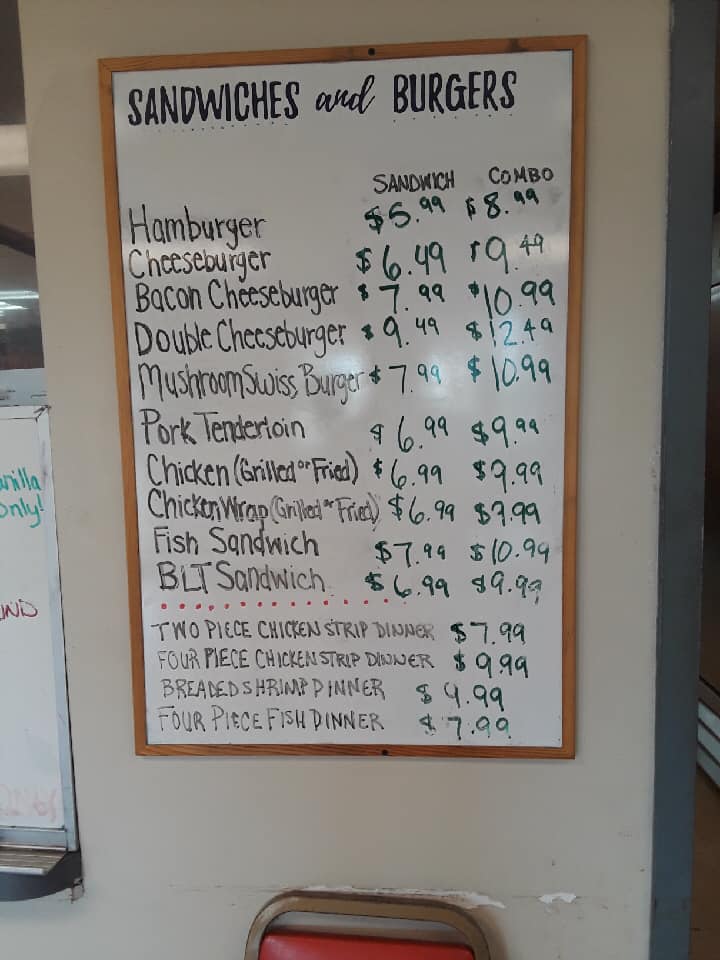 SANDWICHES and BURGERS
SANDWICH COMBO
Hamburger $5.99 $8.99
Cheeseburger $6.49 $9.49
Bacon Cheeseburger $7.99 $10.99
Double Cheeseburger $9.49 $12.49
Mushroom Swiss Burger $7.99 $10.99
Pork Tenderloin $6.99 $9.99
Chicken (Grilled or Fried) $6.99 $9.99
Chicken Wrap (Grilled or Fried) $6.99 $9.99
Fish Sandwich $7.99 $10.99
BLT Sandwich $6.99 $9.99
TWO PIECE CHICKEN STRIP DINNER $7.99
FOUR PIECE CHICKEN STRIP DINNER $9.99
BREADED SHRIMP DINNER $9.99
FOUR PIECE FISH DINNER $7.99
only!